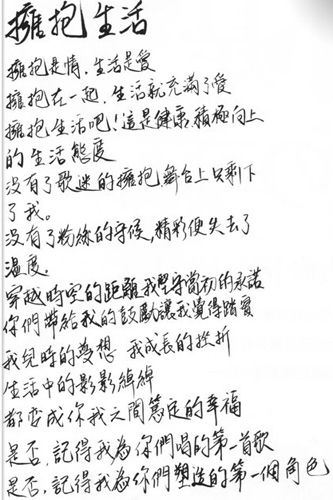 擁抱生活
擁抱是情,生活是愛
擁抱在一起,生活就充滿了愛
擁抱生活吧!這是健康,積極向上
的生活態度
沒有了歌迷的擁抱,舞台上只剩下
了我。
沒有了粉絲的守候,精彩便失去了
溫度.
穿越時空的距離我堅守當初的承諾
你們帶給我的鼓勵讓我覺得踏實
我兒時的夢想 我成長的挫折
生活中的影影綽綽
都变成你我之間篤定的幸福
是否,記得我為你們唱的第一首歌
是否,記得我為你們塑造的第一個角色